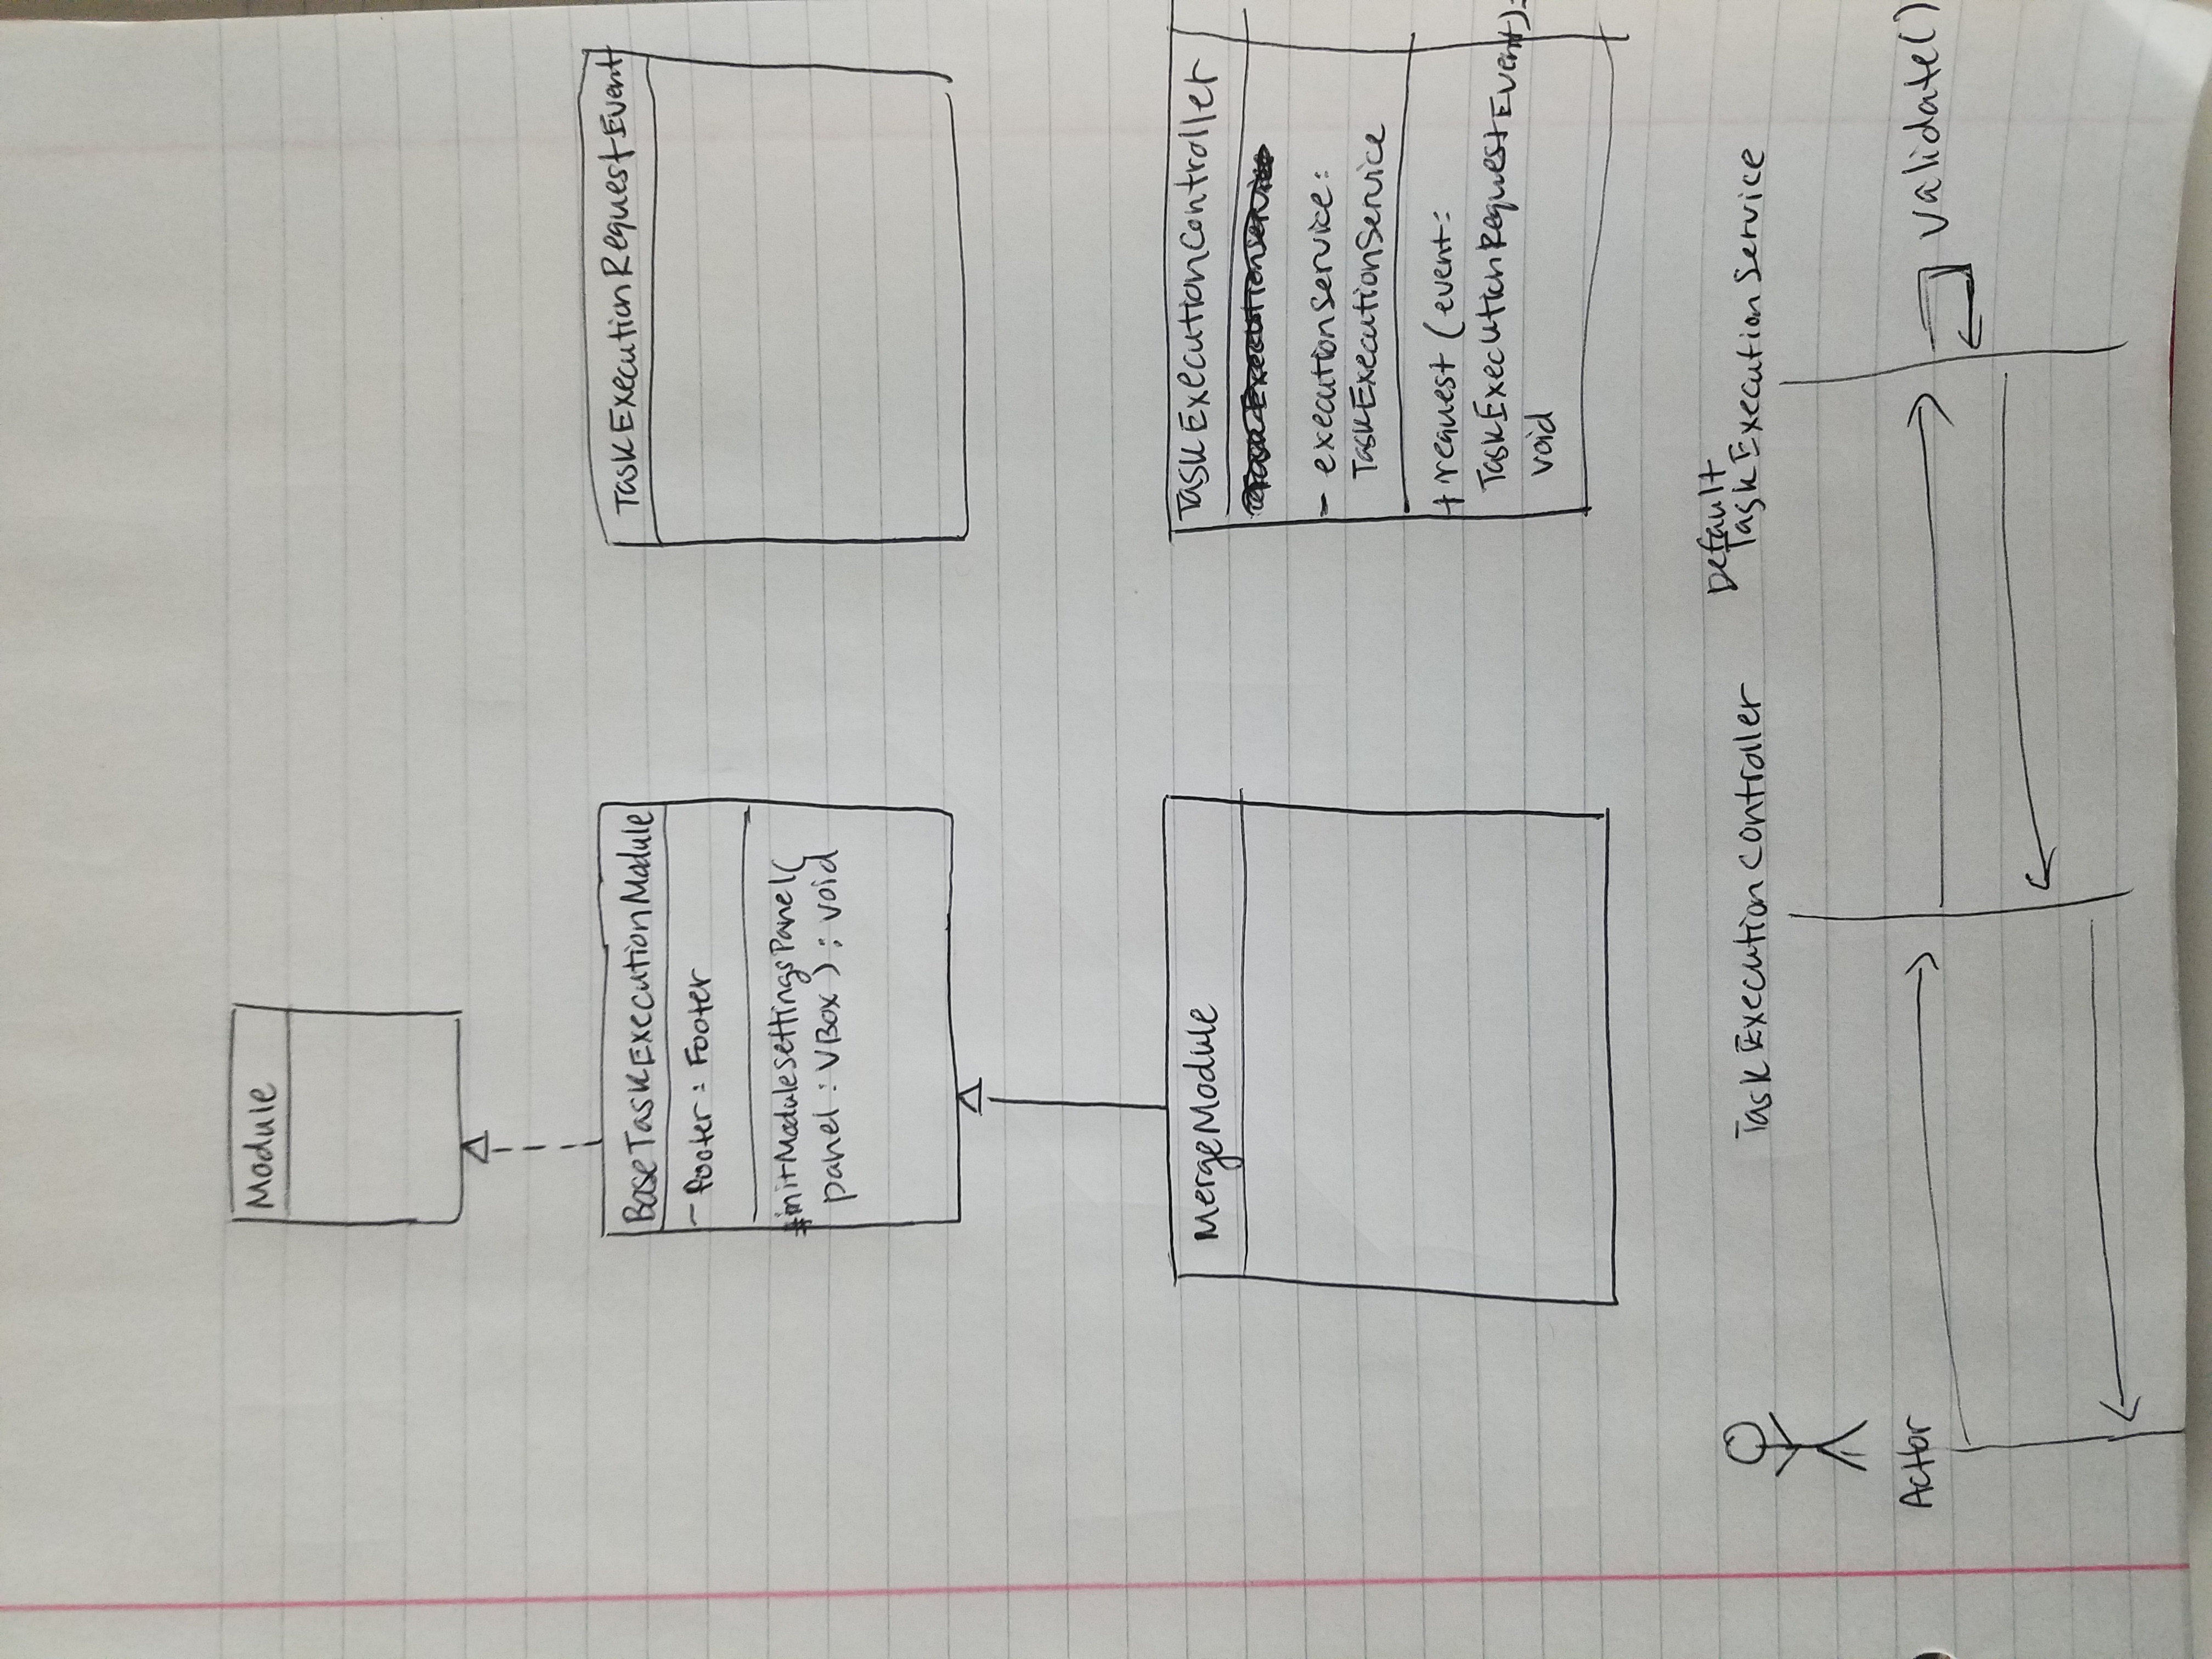 Module
BaseTaskExecutionModule
- footer : Footer
#initModuleSettingsPanel(
panel : VBox ) : void
TaskExecutionRequestEvent
MergeModule
TaskExecutionController
- executionService :
TaskExecutionService
+ request (event :
TaskExecutionRequestEvent) :
void
Actor
TaskExecutionController
Default
TaskExecutionService
validate()